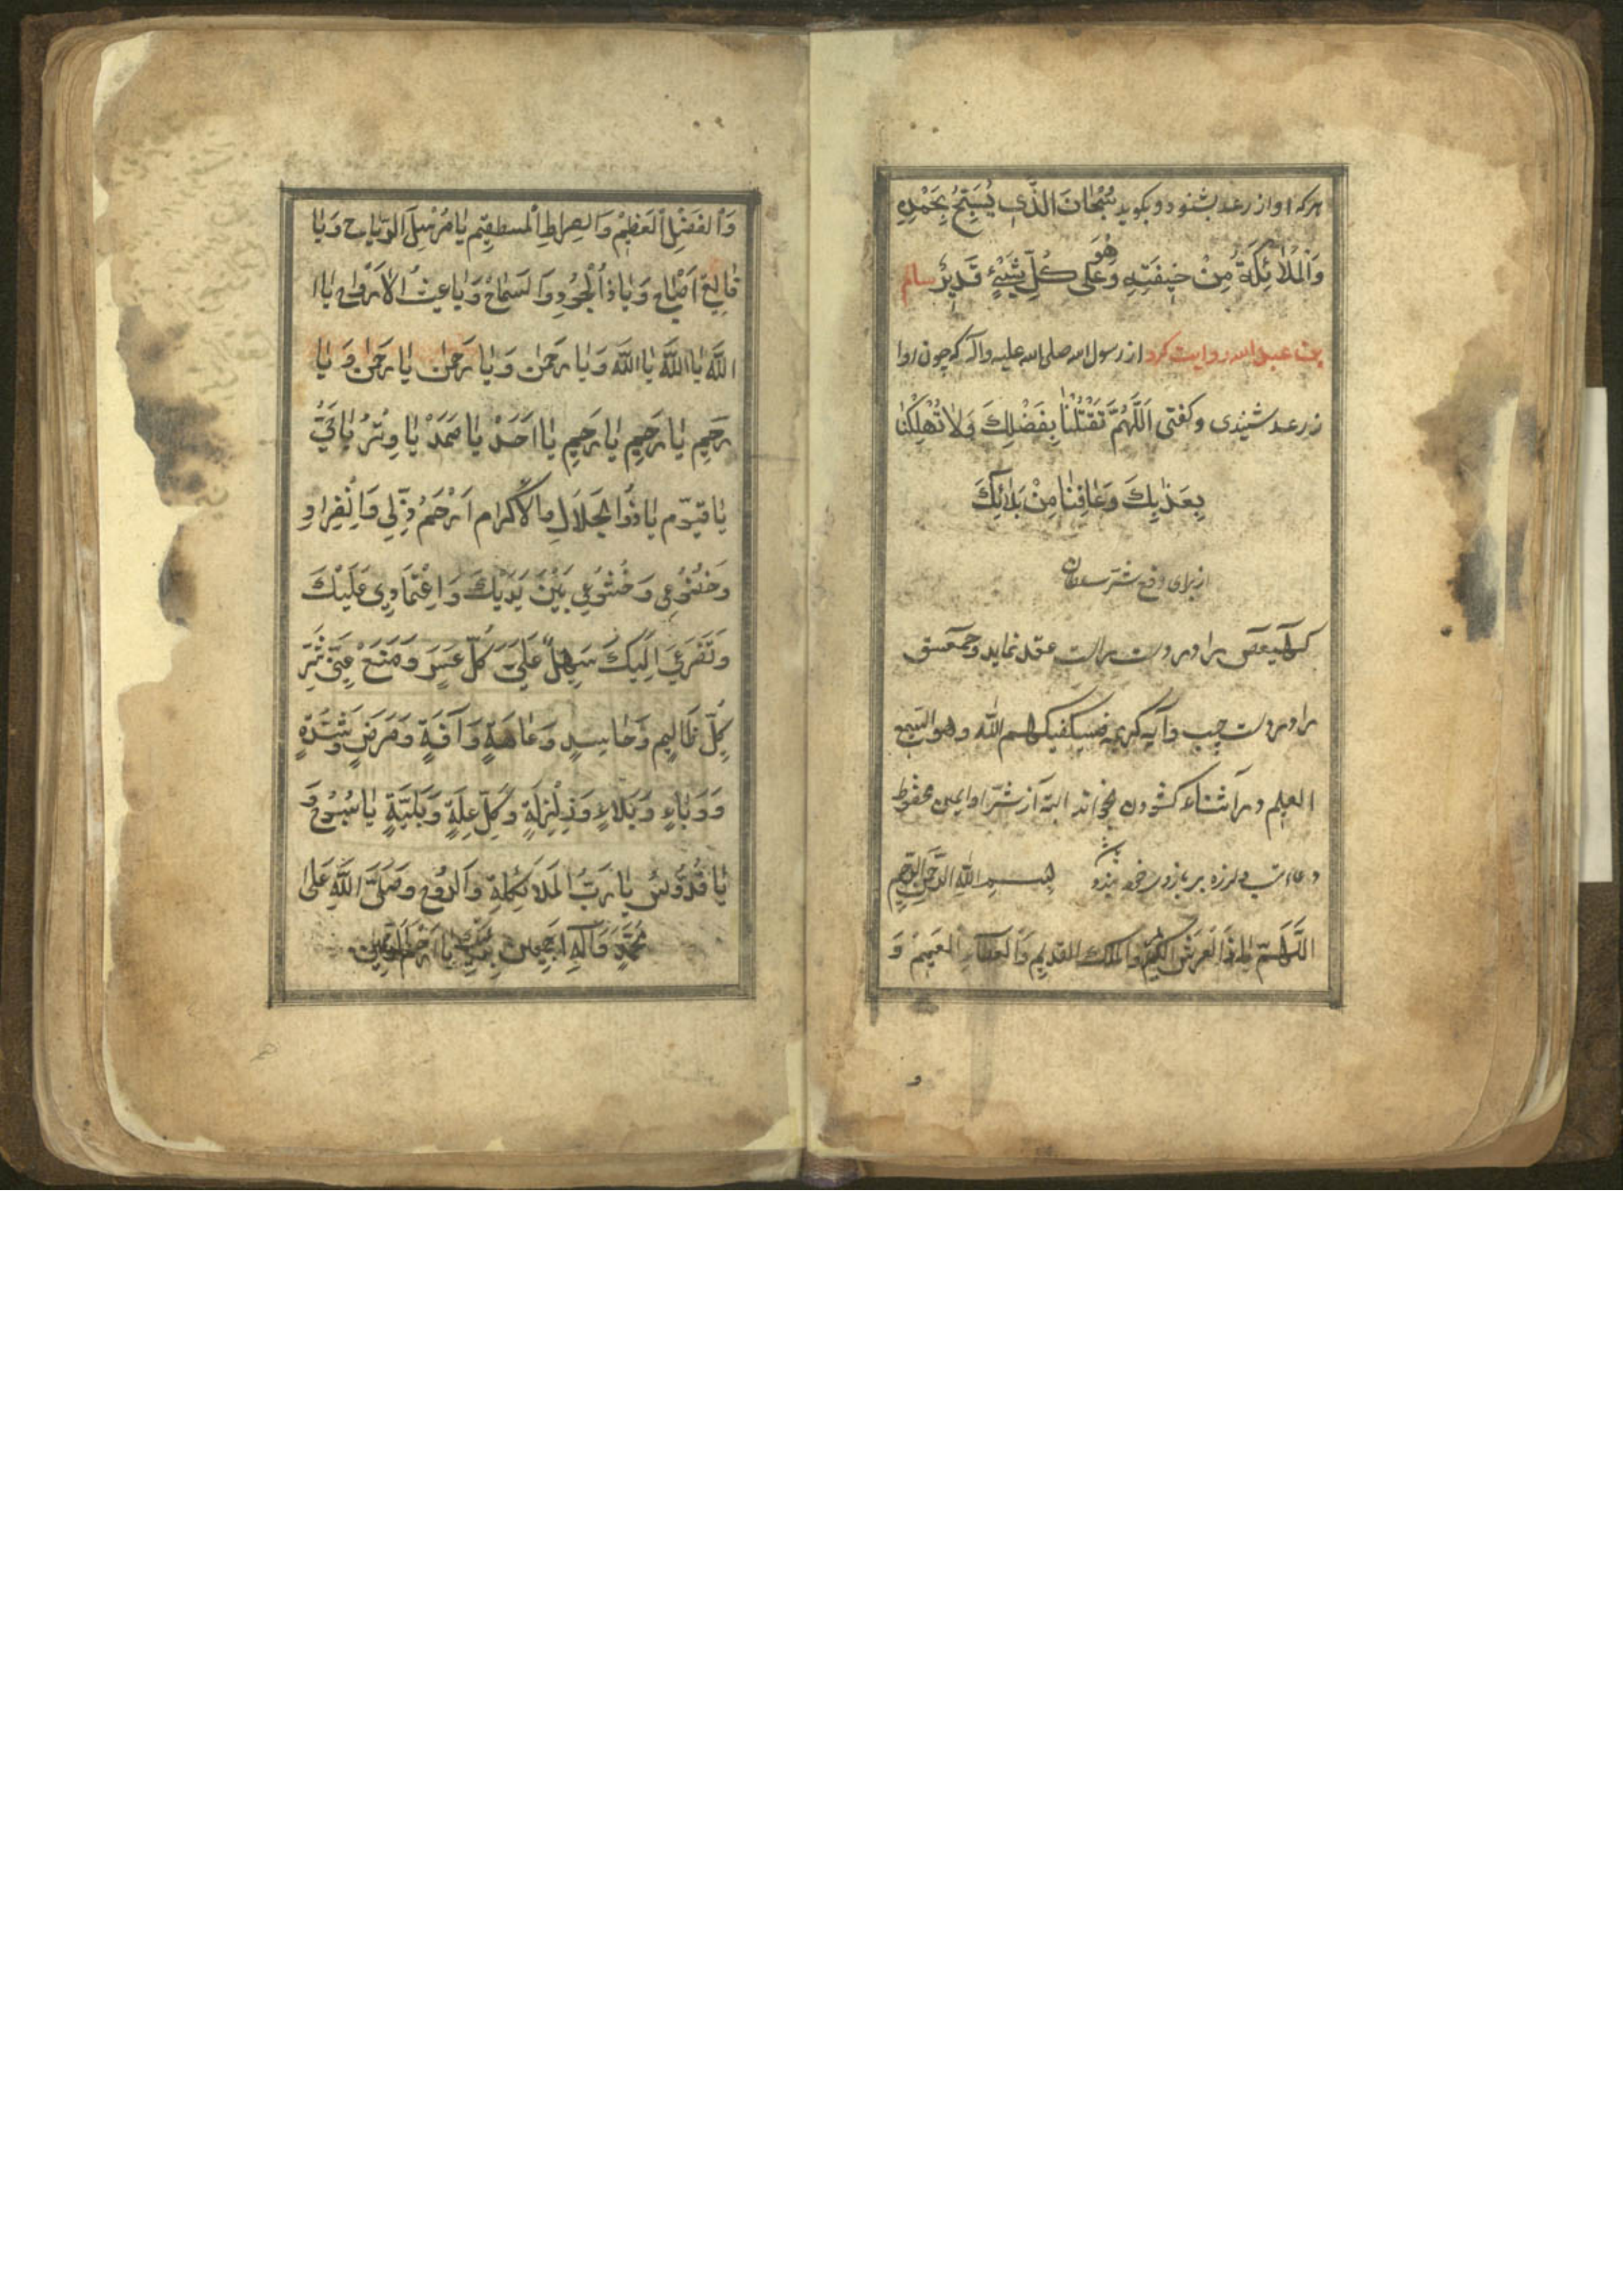 هرکه اواز رعد بشنود و بکوید سُبْحانَ الَّذی یُسَبِّحُ بِحَمْدِهِ
وَالْمَلائِکَةُ مِنْ خیفَتِهِ وَهُوَ عَلی کُلِّ شَیْئٍ قَدیرٌ سالم
بن عبدالله روایت کرد از رسول الله صلی الله علیه واله که چون اوا
ز رعد شنیدی و کفتی اَللَّهُمَّ تَقْتُلْنا بِفَضْلِكَ وَلاتُهْلِکْنا
بِعَذابِكَ وَعافِنا مِنْ بَلائِكَ
از برای دفع شر سلطان
کهیعص را در دست راست عقد نماید و حمعسق
را در دست چپ و آیه کریمه فسیکفیکهم الله و هو السمیع
العلیم در اثناء کشودن بخواند البته از شر او ایمن محفوظ
دعاء تب و لرزه بر بازوی خود بندد بسم الله الرحمن الرحیم
اللهم یا ذا العرش الکریم والملك القدیم والعطاء العمیم وَ
و
وَالفَضْلِ العَظیمْ وَالصِراطِ المسطقیم یا مُرْسِلَ الرِّیاح وَیا
فالِقَ اصْباح وَیا ذا الْجُودِ وَالسَماحْ وَیاعِثَ الاَرْواح یا ا
اللّهَ یا اللّهَ یا اللّهَ وَیا رَحمٰن وَیا رَحمٰن یا رَحمٰن وَ یا
رَحیم یا رَحیِم یا رَحیِم یا اَحَدْ یا صَمَدْ یا وِتْرُ یا حَیُّ
یا قیّوم یا ذُوا الجَلالِ والاکرام اَرْحَمْ ذِّلی وَانْفِرادِ
وَخضُوعی وَخُشُوعی بَیْنَ یَدَیْكَ وَاِعْتِمادِی عَلَیْكَ
وَتَضَرُّعی اِلَیْكَ سَهِلْ عَلَیَّ کُلَّ عَسَرٍ وَمَنَعْ عِنّی شَرَّ
کِلِّ ظالِمٍ وَحاسِدٍ وَعاهَةٍ وَآفَةٍ وَمَرَضٍ وَشِدَّةٍ
وَوَباءٍ وَبَلاءٍ وَذِلْزِلَةٍ وَکُلِّ عِلَةٍ وَبَلِیَّةٍ یا سُبّوُحَ وَ
یا قُدُّوسُ یا رَبُّ المَلائِکةِ وَالرُوح وَصَلَّی اللّهِ عَلیٰ
مُحَمَّدٍ وَآلِهِ اجمعین یا اَرْحَمَ الرّاحِمین